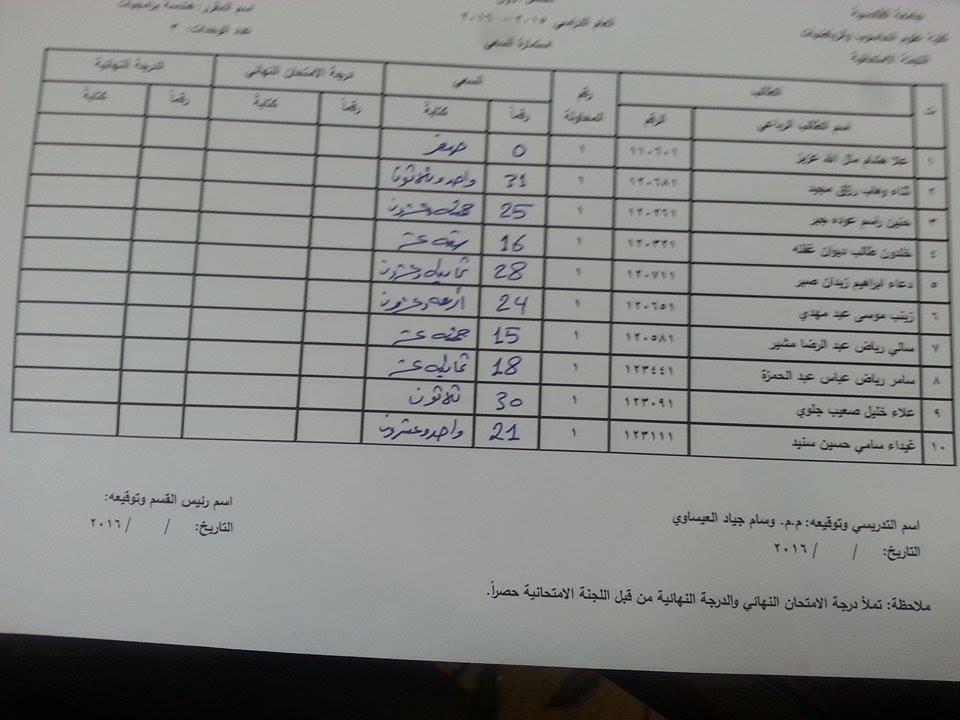 جامعة القادسية
كلية علوم الحاسوب والرياضيات
اللجنة الامتحانية
العام الدراسي ٢٠١٥ - ٢٠١٦
استمارة السعي
اسم المقرر: هندسة برمجيات
عدد الوحدات: ٣
ت الطالب رقم المحاولة السعي درجة الامتحان النهائي الدرجة النهائية
اسم الطالب الرباعي الرقم رقماً كتابةً رقماً كتابةً رقماً كتابةً
١ علا هشام مال الله عزيز ١ 0 صفر
٢ ثناء وهاب رزاق مجيد ١٢٠٦٨١ ١ 31 واحد وثلاثون
٣ حنين راسم عوده جبر ١ 25 خمسة وعشرون
٤ خلدون طالب ديوان عفته ١٢٠٣٢١ ١ 16 ستة عشر
٥ دعاء ابراهيم زيدان صبر ١٢٠٧١١ ١ 28 ثمانية وعشرون
٦ زينب موسى عبد مهدي ١٢٠٦٥١ ١ 24 أربعة وعشرون
٧ سالي رياض عبد الرضا مشير ١٢٠٥٨١ ١ 15 خمسة عشر
٨ سامر رياض عباس عبد الحمزة ١٢٣٤٤١ ١ 18 ثمانية عشر
٩ علاء خليل صعيب جلوي ١٢٣٠٩١ ١ 30 ثلاثون
١٠ غيداء سامي حسين سنيد ١٢٣١١١ ١ 21 واحد وعشرون
اسم التدريسي وتوقيعه: م.م. وسام جياد العيساوي
التاريخ: / / ٢٠١٦
اسم رئيس القسم وتوقيعه:
التاريخ: / / ٢٠١٦
ملاحظة: تملأ درجة الامتحان النهائي والدرجة النهائية من قبل اللجنة الامتحانية حصراً.